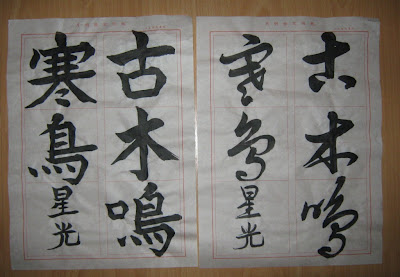 古木鳴
寒鳥星光
古木鳴
寒鳥星光